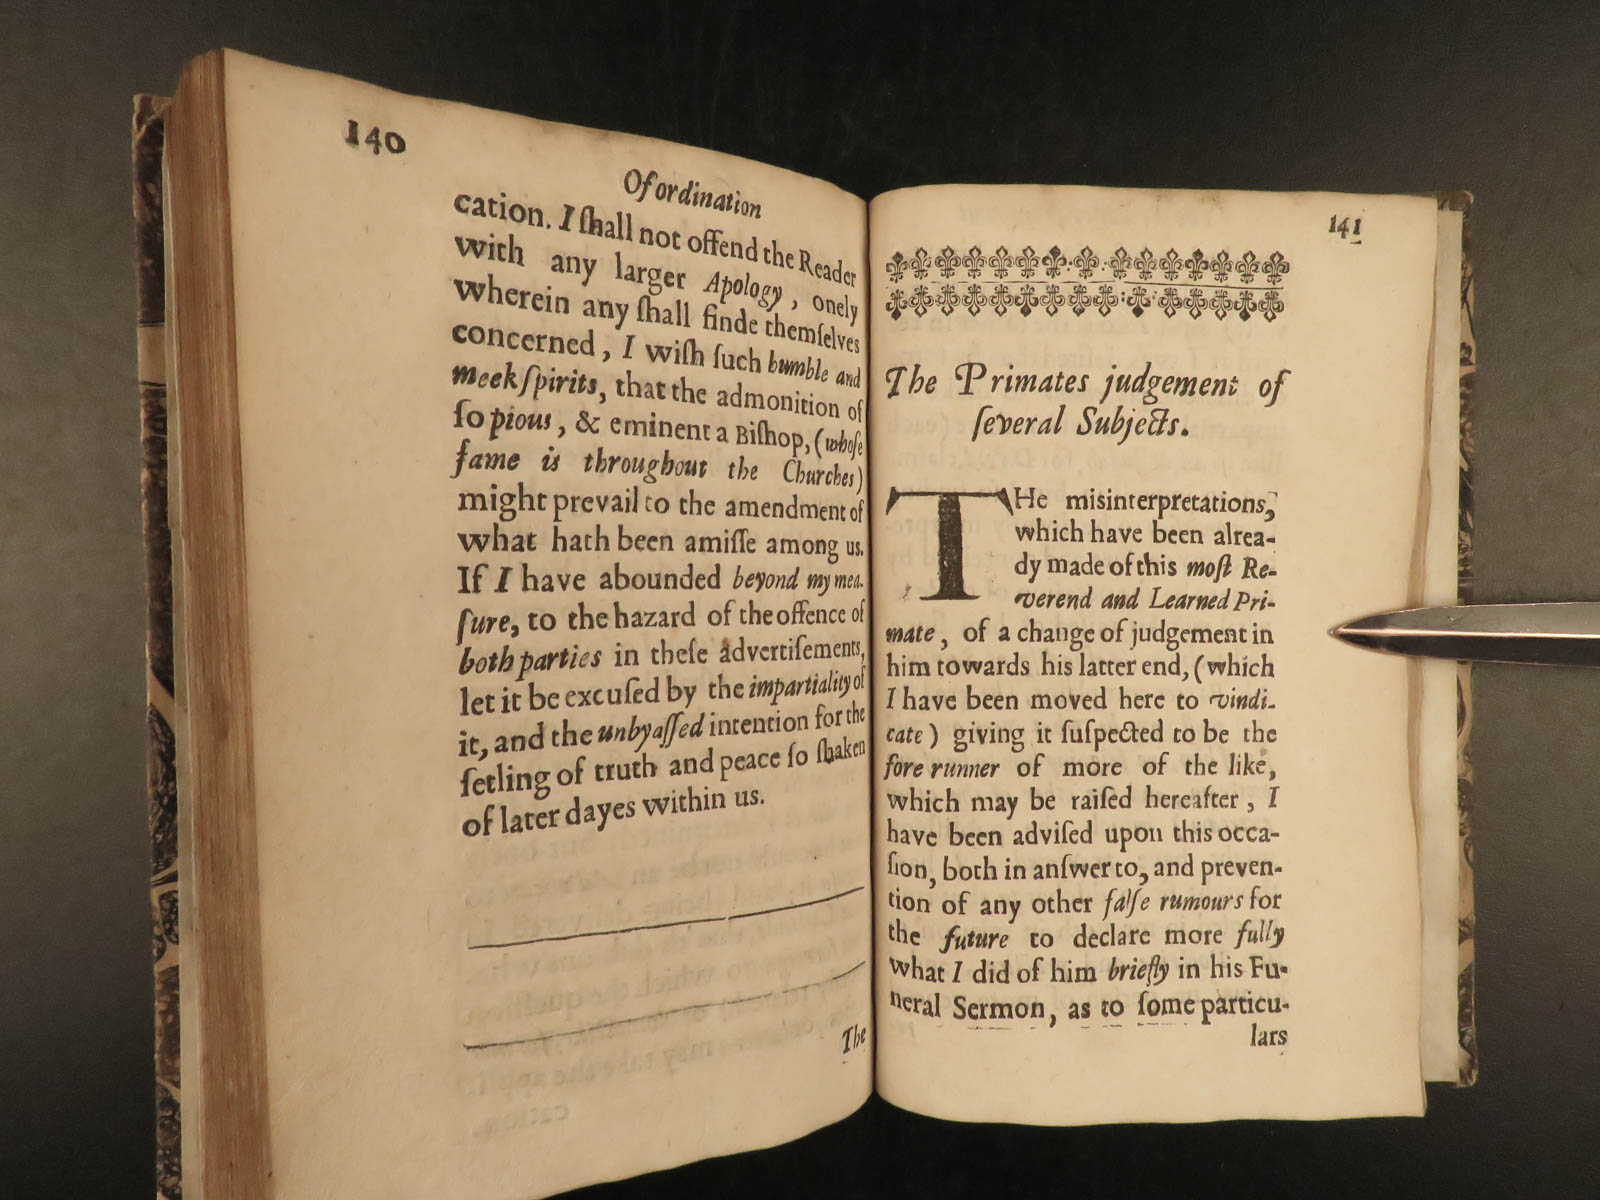 140
Of ordination
cation. I ſhall not offend the Reader
with any larger Apology, onely
wherein any ſhall finde themſelves
concerned, I wiſh ſuch humble and
meek ſpirits, that the admonition of
ſo pious, & eminent a Biſhop, (whoſe
fame is throughout the Churches)
might prevail to the amendment of
what hath been amiſſe among us.
If I have abounded beyond my mea-
ſure, to the hazard of the offence of
both parties in theſe advertiſements,
let it be excuſed by the impartiality of
it, and the unbyaſſed intention for the
ſetling of truth and peace ſo ſhaken
of later dayes within us.
The
141
The Primates judgement of
ſeveral Subjects.
THe misinterpretations,
which have been alrea-
dy made of this moſt Re-
verend and Learned Pri-
mate, of a change of judgement in
him towards his latter end, (which
I have been moved here to vindi-
cate) giving it ſuſpected to be the
fore runner of more of the like,
which may be raiſed hereafter, I
have been adviſed upon this occa-
ſion, both in anſwer to, and preven-
tion of any other falſe rumours for
the future to declare more fully
what I did of him briefly in his Fu-
neral Sermon, as to ſome particu-
lars